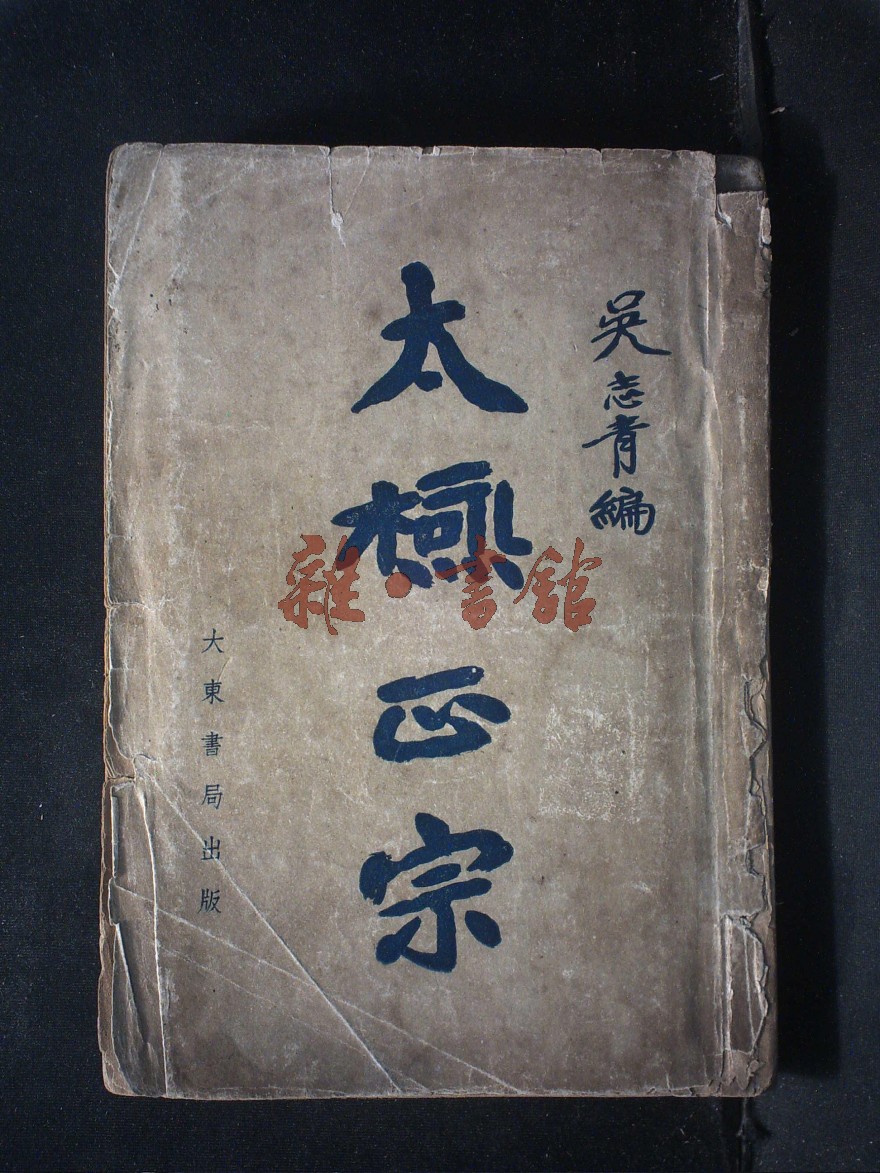 吳志青編
太極正宗
大東書局出版
雜·書館